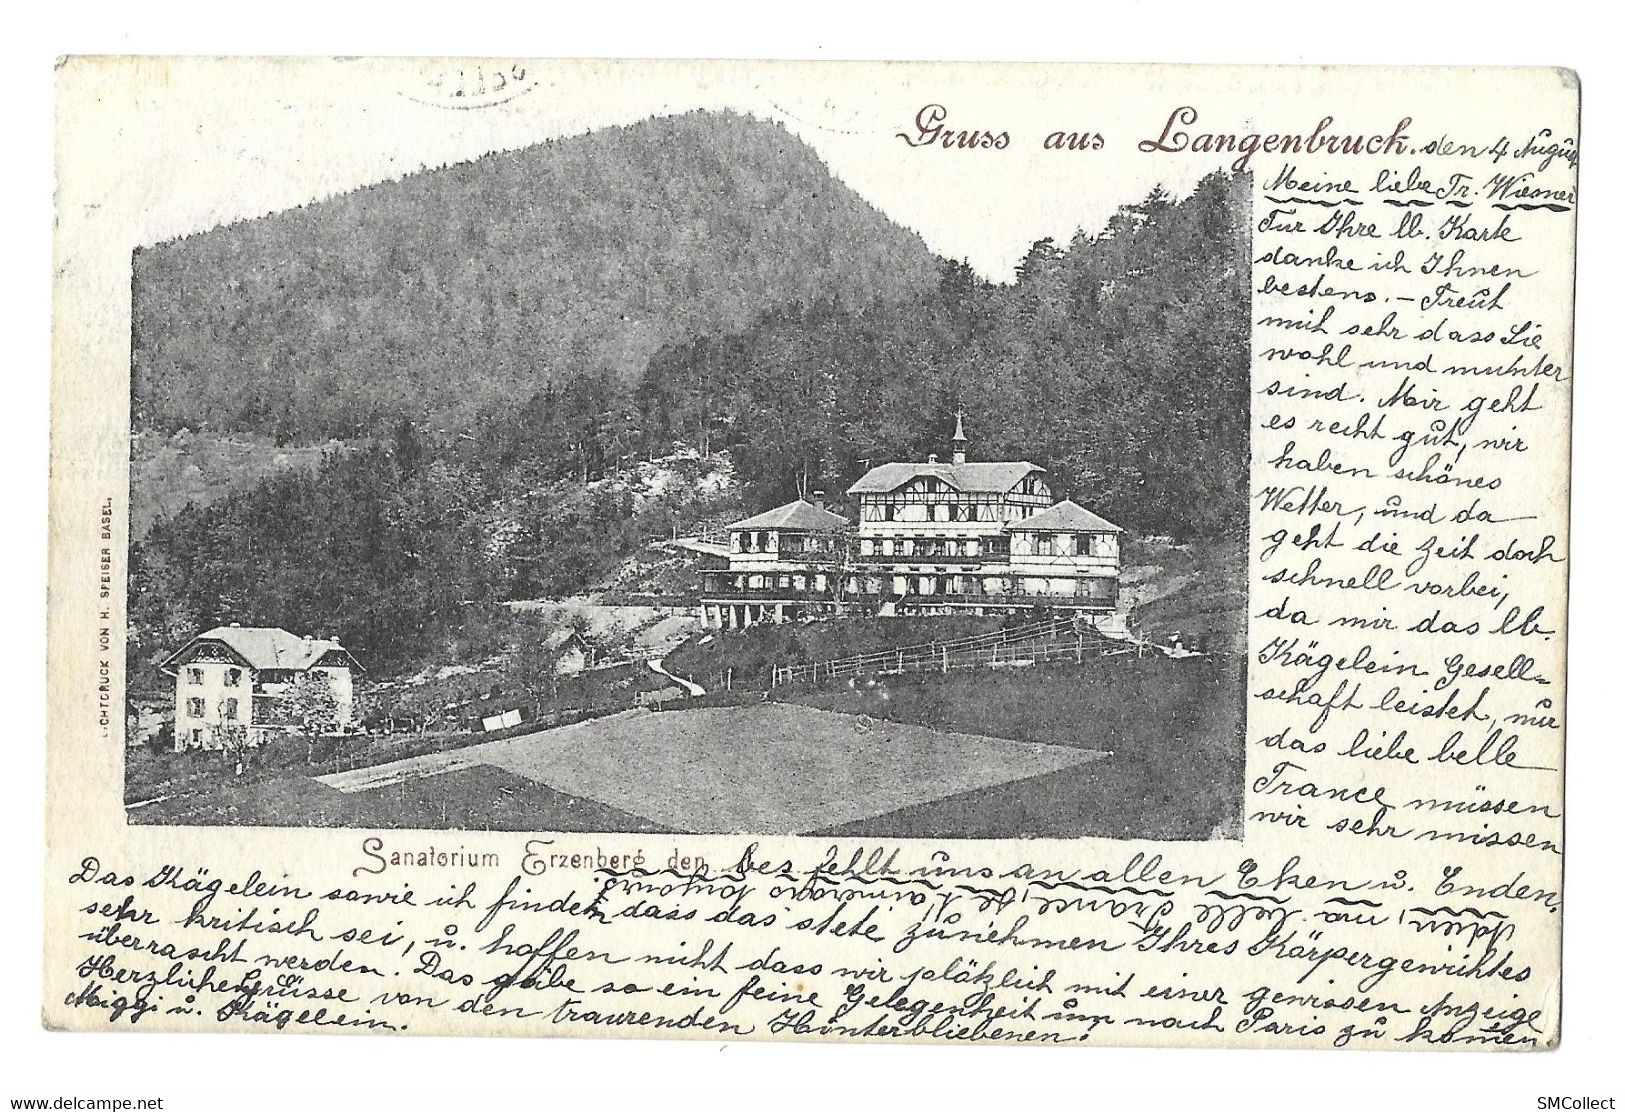 Gruss aus Langenbruck. den 4 August
Meine liebe Fr. Wiesner
Für Ihre lb. Karte
danke ich Ihnen
bestens. – Freut
mich sehr dass Sie
wohl und munter
sind. Mir geht
es recht gut, wir
haben schönes
Wetter, und da
geht die Zeit doch
schnell vorbei,
da mir das lb.
Kägelein Gesell=
schaft leistet, nur
das liebe belle
France müssen
wir sehr missen
LICHTDRUCK VON H. SPEISER BASEL.
Sanatorium Erzenberg den
es fehlt uns an allen Eken u. Enden.
Adieu, ma belle France, de
Das Kägelein sowie ich finden dass das stete zunehmen Ihres Körpergewichtes
sehr kritisch sei, u. hoffen nicht dass wir plötzlich mit einer gewissen Anzeige
überrascht werden. Das gäbe so ein feine Gelegenheit um nach Paris zu komen.
Herzliche Grüsse von den traurenden Hinterbliebenen!
Miggi u. Kägelein.
www.delcampe.net
SMCollect